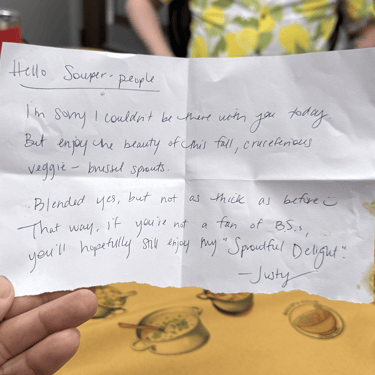 Hello Souper-people
I'm sorry I couldn't be there with you today
But enjoy the beauty of this fall, cruceferious
veggie - brussel sprouts.
Blended yes, but not as thick as before
That way, if you're not a fan of BS.s,
you'll hopefully still enjoy my "Sproutful Delight".
- Justy